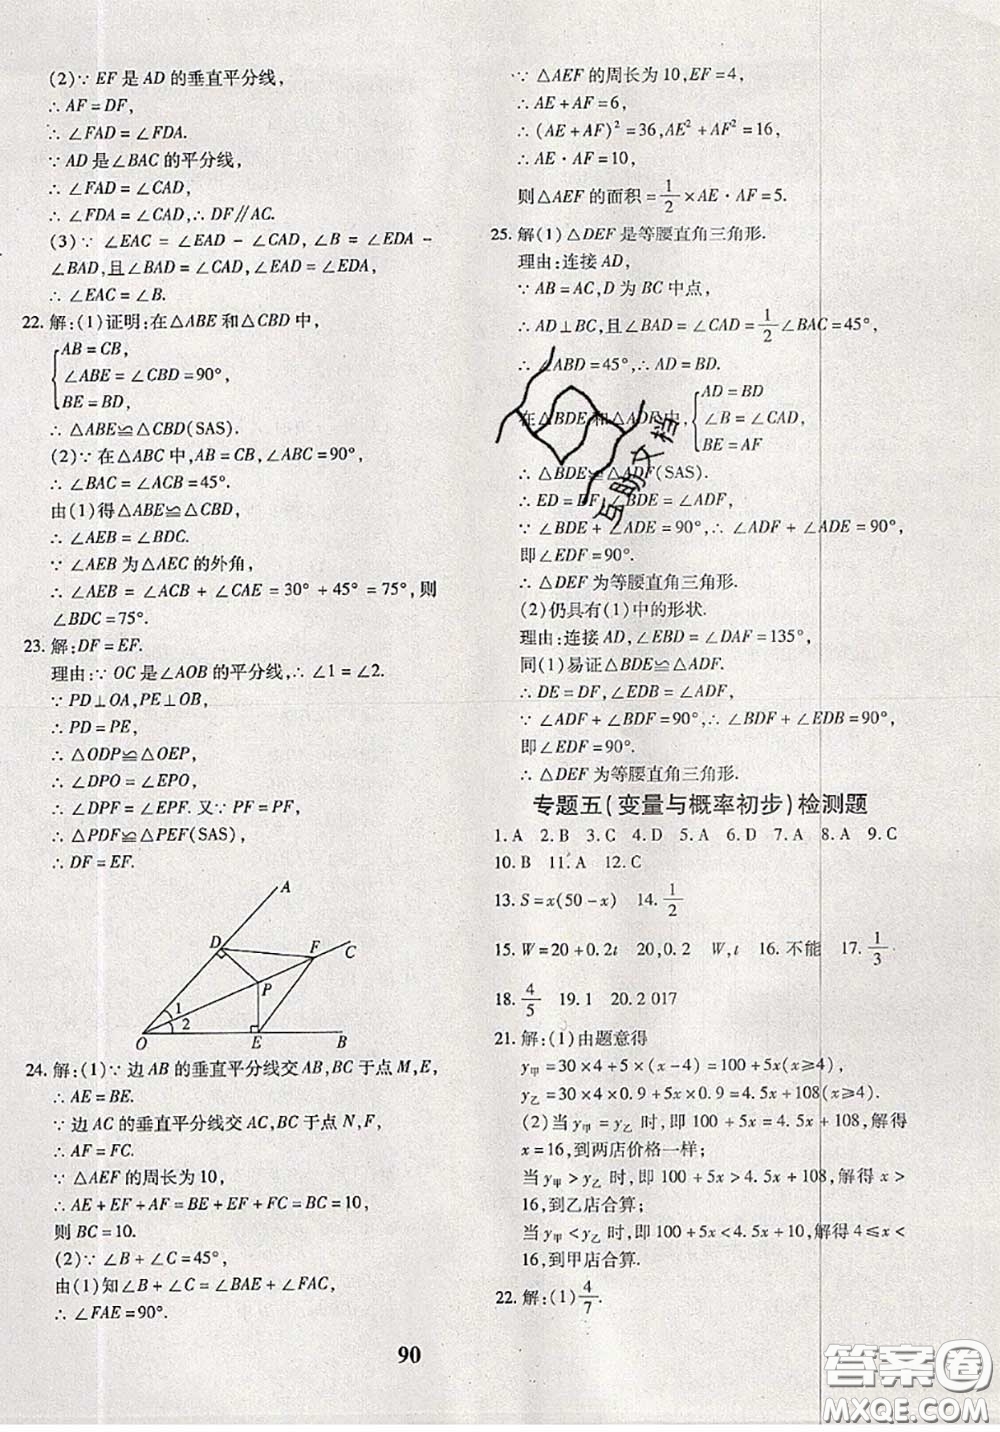 (2)∵ EF 是 AD 的垂直平分线,
∴ AF = DF,
∴ ∠FAD = ∠FDA.
∵ AD 是∠BAC 的平分线,
∴ ∠FAD = ∠CAD,
∴ ∠FDA = ∠CAD,∴ DF∥AC.
(3)∵ ∠EAC = ∠EAD - ∠CAD,∠B = ∠EDA -
∠BAD,且∠BAD = ∠CAD,∠EAD = ∠EDA,
∴ ∠EAC = ∠B.
22. 解:(1)证明:在△ABE 和△CBD 中,
AB = CB,
∠ABE = ∠CBD = 90°,
BE = BD,
∴ △ABE≌△CBD(SAS).
(2)∵在△ABC 中,AB = CB,∠ABC = 90°,
∴ ∠BAC = ∠ACB = 45°.
由(1)得△ABE≌△CBD,
∴ ∠AEB = ∠BDC.
∵ ∠AEB 为△AEC 的外角,
∴ ∠AEB = ∠ACB + ∠CAE = 30° + 45° = 75°,则
∠BDC = 75°.
23. 解:DF = EF.
理由:∵ OC 是∠AOB 的平分线,∴ ∠1 = ∠2.
∵ PD⊥OA,PE⊥OB,
∴ PD = PE,
∴ △ODP≌△OEP,
∴ ∠DPO = ∠EPO,
∴ ∠DPF = ∠EPF. 又∵ PF = PF,
∴ △PDF≌△PEF(SAS),
∴ DF = EF.
A
D
F
C
P
1
2
O
E
B
24. 解:(1)∵ 边 AB 的垂直平分线交 AB,BC 于点 M,E,
∴ AE = BE.
∵边 AC 的垂直平分线交 AC,BC 于点 N,F,
∴ AF = FC.
∵ △AEF 的周长为 10,
∴ AE + EF + AF = BE + EF + FC = BC = 10,
则 BC = 10.
(2)∵ ∠B + ∠C = 45°,
由(1)知∠B + ∠C = ∠BAE + ∠FAC,
∴ ∠FAE = 90°.
∵ △AEF 的周长为 10,EF = 4,
∴ AE + AF = 6,
∴ (AE + AF)² = 36,AE² + AF² = 16,
∴ AE · AF = 10,
则△AEF 的面积 = 1/2 × AE · AF = 5.
25. 解(1)△DEF 是等腰直角三角形.
理由:连接 AD,
∵ AB = AC,D 为 BC 中点,
∴ AD⊥BC,且∠BAD = ∠CAD = 1/2 ∠BAC = 45°,
∴ ∠ABD = 45°,∴ AD = BD.
在△BDE 和△ADF 中,
AD = BD
∠B = ∠CAD,
BE = AF
∴ △BDE≌△ADF(SAS).
∴ ED = DF,∠BDE = ∠ADF,
∵ ∠BDE + ∠ADE = 90°,∴ ∠ADF + ∠ADE = 90°,
即∠EDF = 90°.
∴ △DEF 为等腰直角三角形.
(2)仍具有(1)中的形状.
理由:连接 AD,∠EBD = ∠DAF = 135°,
同(1)易证△BDE≌△ADF.
∴ DE = DF,∠EDB = ∠ADF,
∵ ∠ADF + ∠BDF = 90°,∴ ∠BDF + ∠EDB = 90°,
即∠EDF = 90°.
∴ △DEF 为等腰直角三角形.
专题五(变量与概率初步)检测题
1. A 2. B 3. C 4. D 5. A 6. D 7. A 8. A 9. C
10. B 11. A 12. C
13. S = x(50 - x) 14. 1/2
15. W = 20 + 0.2t 20,0.2 W,t 16. 不能 17. 1/3
18. 4/5 19. 1 20. 2 017
21. 解:(1)由题意得
y甲 = 30 × 4 + 5 × (x - 4) = 100 + 5x(x≥4),
y乙 = 30 × 4 × 0.9 + 5x × 0.9 = 4.5x + 108(x≥4).
(2)当 y甲 = y乙 时,即 100 + 5x = 4.5x + 108,解得
x = 16,到两店价格一样;
当 y甲 > y乙 时,即 100 + 5x > 4.5x + 108,解得 x >
16,到乙店合算;
当 y甲 < y乙 时,即 100 + 5x < 4.5x + 10,解得 4≤x <
16,到甲店合算.
22. 解:(1) 4/7.
90
互助文档
答案卷
MXQE.COM